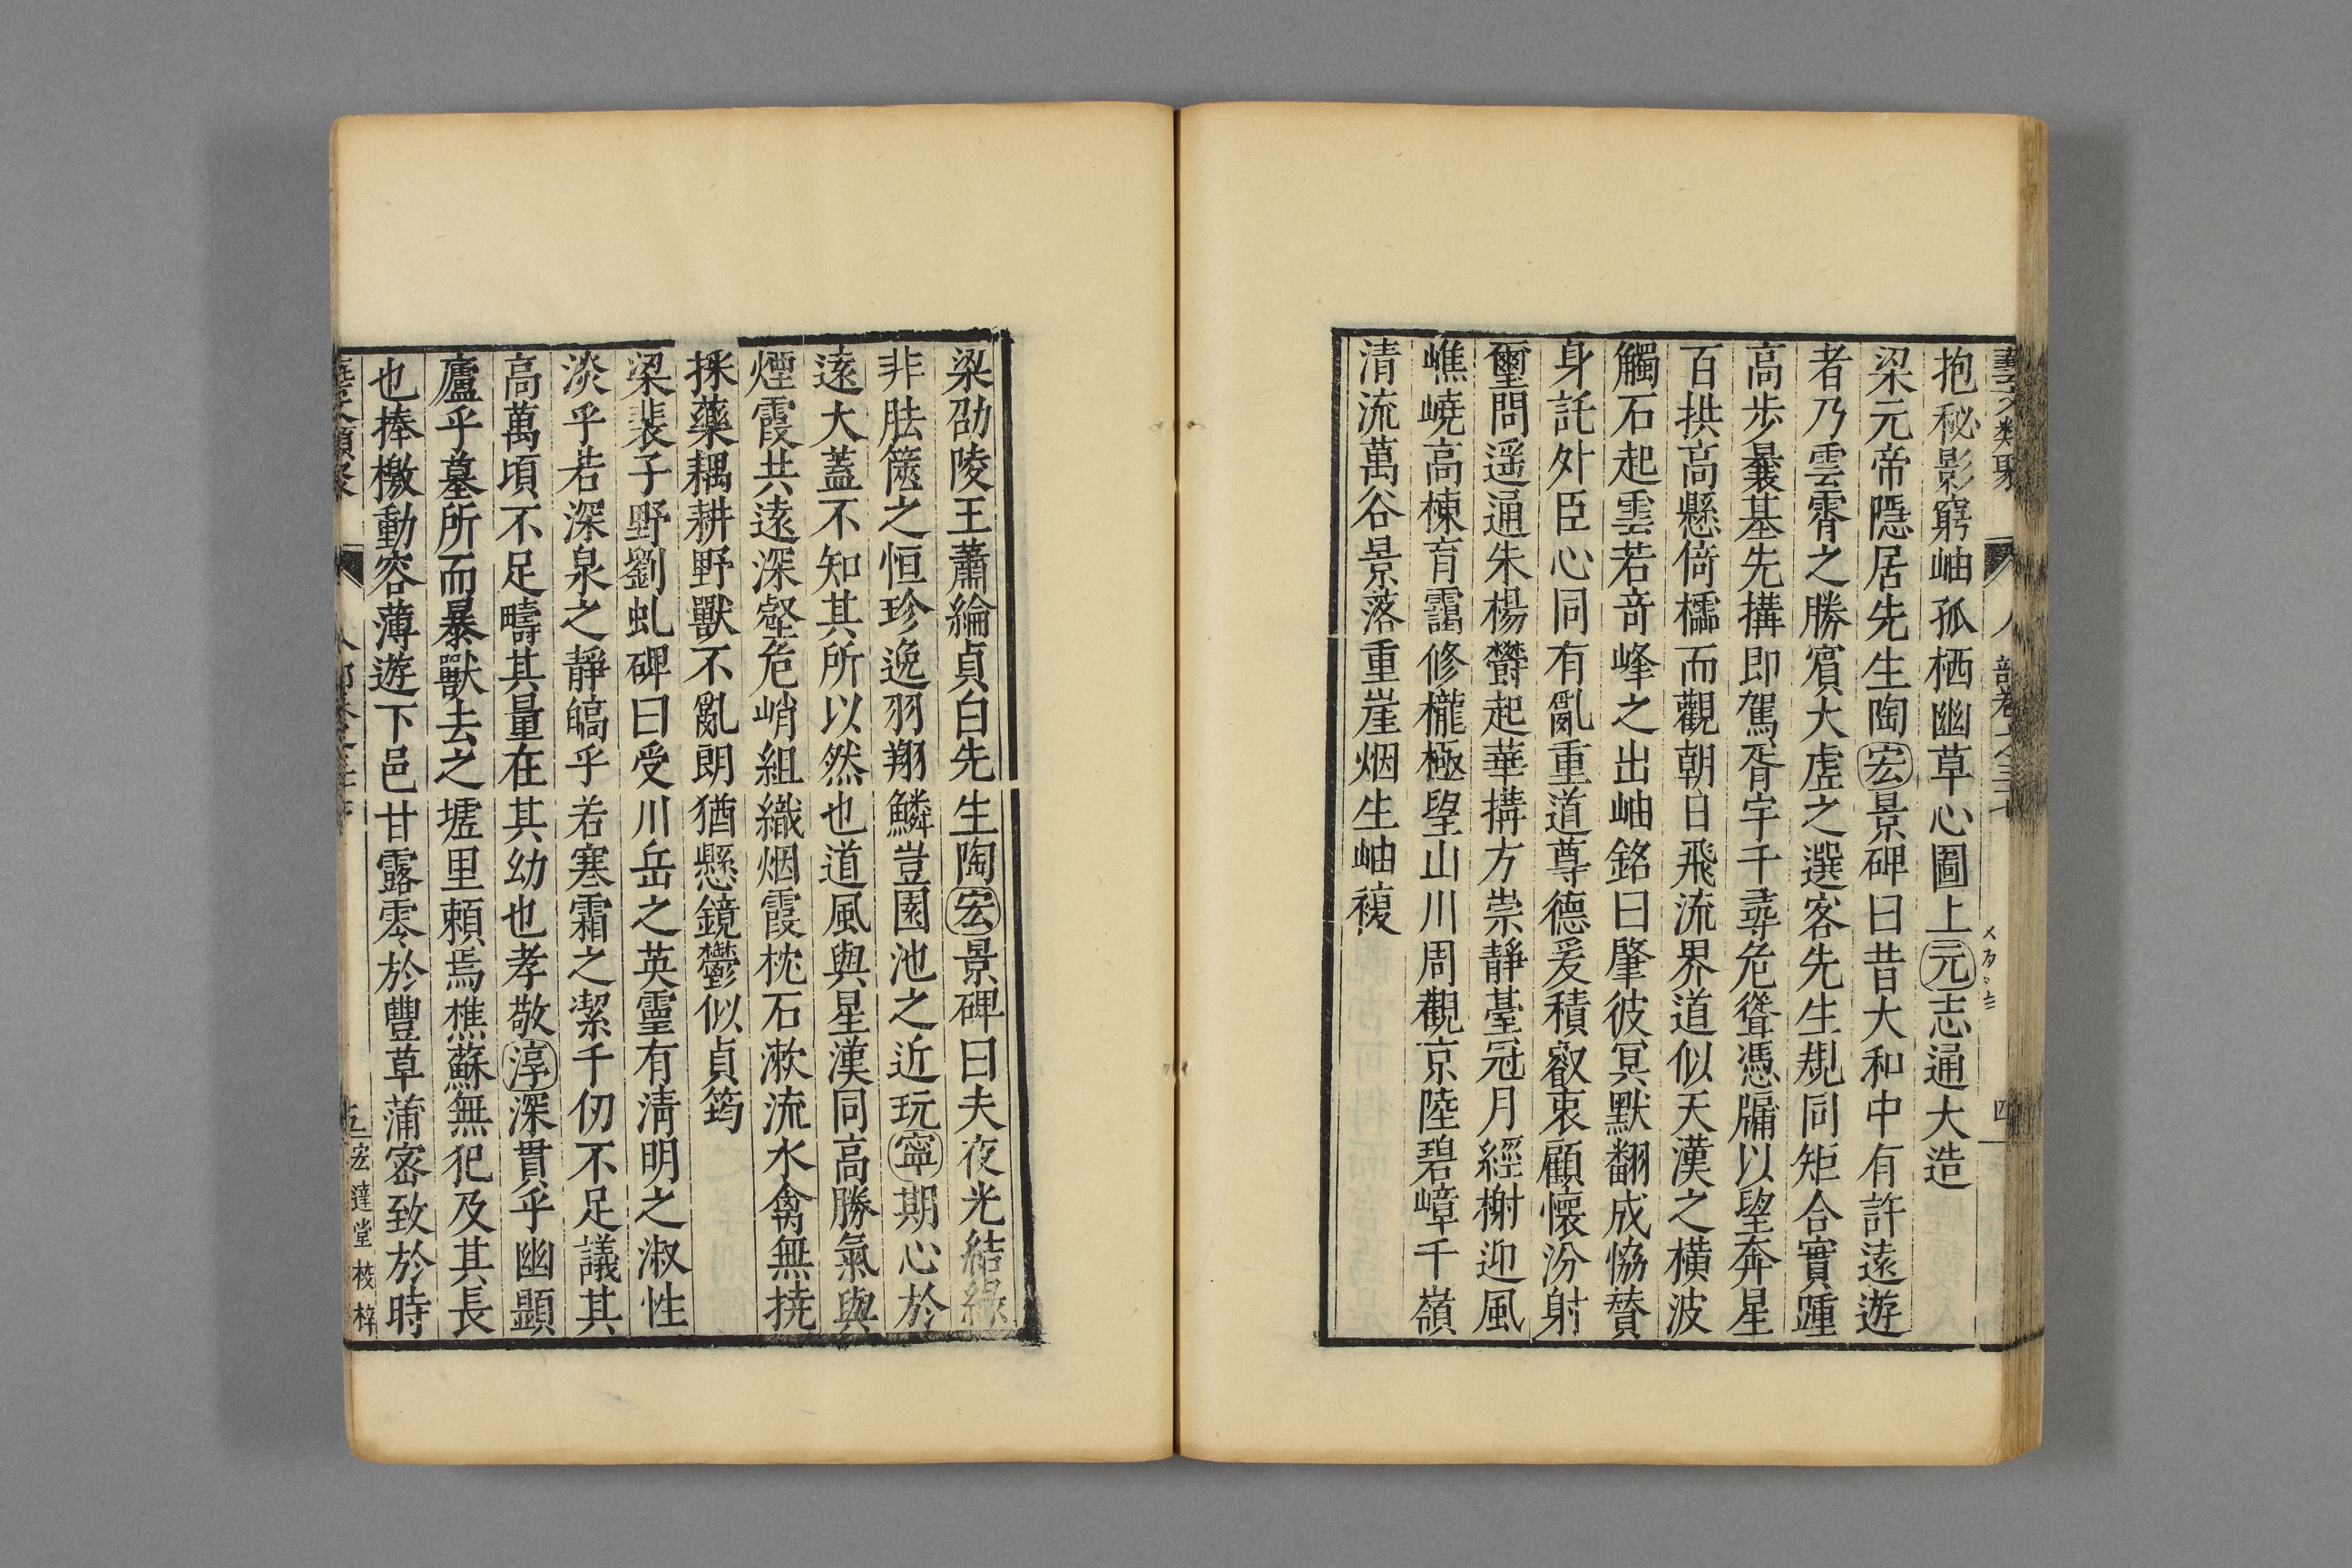 藝文類聚 人部卷之三十七 四
抱秘影窮岫孤栖幽草心圖上元志通大造
梁元帝隱居先生陶宏景碑曰昔大和中有許遠遊
者乃雲霄之勝賓大虛之選客先生規同矩合實踵
高步曩基先構即駕胥宇千尋危聳憑牖以望奔星
百拱高懸倚櫺而觀朝日飛流界道似天漢之橫波
觸石起雲若奇峰之出岫銘曰肇彼冥默翻成恊贊
身託外臣心同有亂重道尊德爰積叡衷顧懷汾射
璽問遥通朱楊欎起華構方崇靜臺冠月經榭迎風
嶕嶢高棟育靄修櫳極望山川周觀京陸碧嶂千嶺
清流萬谷景落重崖烟生岫複
梁劭陵王蕭綸貞白先生陶宏景碑曰夫夜光結綠
非胠篋之恒珍逸羽翔鱗豈園池之近玩寧期心於
遠大蓋不知其所以然也道風與星漢同高勝氣與
煙霞共遠深壑危峭組織烟霞枕石漱流水禽無撓
採藥耦耕野獸不亂朗猶懸鏡鬱似貞筠
梁裴子野劉虬碑曰受川岳之英靈有清明之淑性
淡乎若深泉之靜皜乎若寒霜之潔千仞不足議其
高萬頃不足疇其量在其幼也孝敬淳深貫乎幽顯
廬乎墓所而暴獸去之墟里賴焉樵蘇無犯及其長
也捧檄動容薄遊下邑甘露零於豐草蒲密致於時
藝文類聚 人部卷之三十七 五 宏達堂校梓